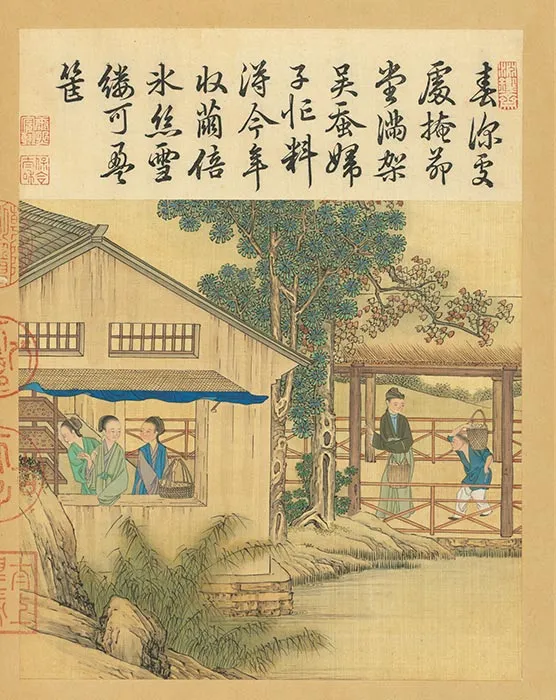 春深處
處掩茅
堂滿架
吳蚕婦
子忙料
得今年
收繭倍
氷絲雪
縷可盈
筐